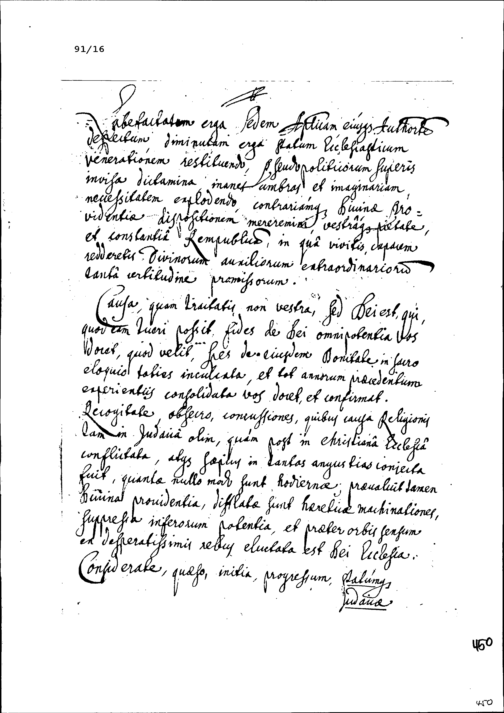 91/16
labefactatam erga Sedem Aplicam eiusq; Authoritē
despectum diminutam erga statum Ecclesiasticum
venerationem restituendo, Pseudopoliticorum superis
invisa dictamina inanes umbras et imaginariam
necessitatem explodendo, contrariamq; Diuinæ Pro=
videntiæ dispositionem mereremini vestrâq; pietate,
et constantiâ Rempublicã, in quâ vivitis, capacem
redderetis Divinorum auxiliorum extraordinariorū
tantâ certitudine promissorum.
Causa, quam tractatis, non vestra, sed Dei est, qui,
quod eam tueri possit, fides de Dei omnipotentia vos
docet, quod velit, spes de eiusdem Bonitate in sacro
eloquio toties inculcata, et tot annorum præcedentium
experientiis consolidata vos docet, et confirmat.
Recogitate, obsecro, concussiones, quibus causa Religionis
tam in Judæâ olim, quàm post in christianâ Ecclesiâ
conflictata, atqs sæpius in tantas angustias coniecta
fuit, quantæ nullo modo sunt hodiernæ; præualuit tamen
Diuina prouidentia, difflatæ sunt hæreticæ machinationes,
suppressa inferorum potentia, et præter orbis sensum
ex desperatissimis rebus eluctata est Dei Ecclesia.
Considerate, quæso, initia, progressum, statumq;
Judææ
450
450